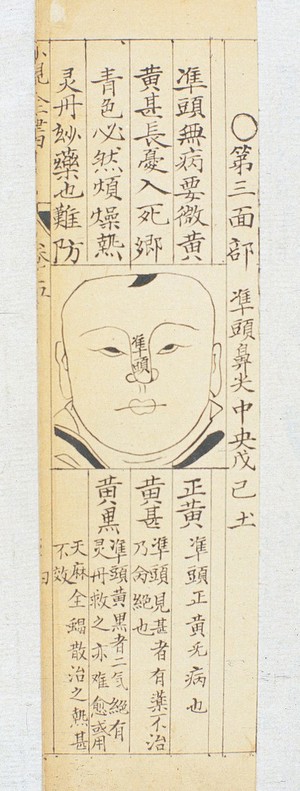 ○第三面部 凖頭鼻尖中央戊己土
凖頭無病要微黃
黃甚長憂入死鄉
青色必然煩燥熱
灵丹妙藥也難防
凖頭
正黃 凖頭正黃无病也
黃甚 凖頭見甚者有藥不治
乃命絕也
黃黒 凖頭黃黒者二気絕有
灵丹救之亦难愈或用
天麻全蝎散治之熱甚
不效
全書